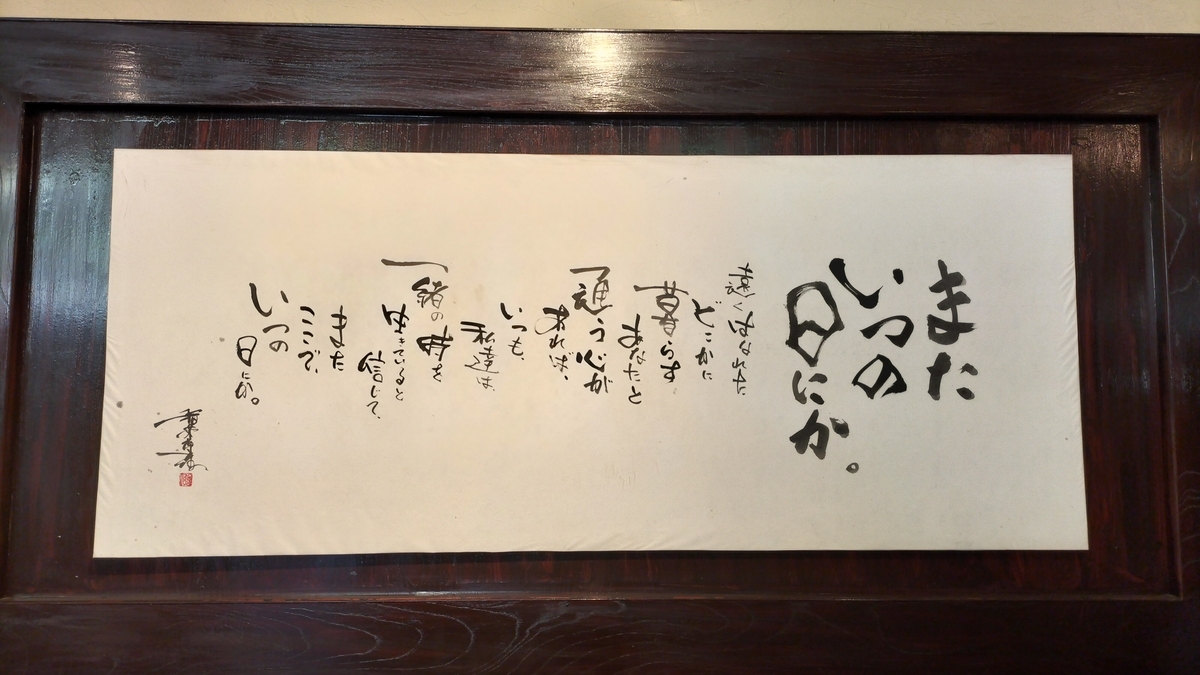 また
いつの
日にか。
どこかに
暮らす
あなたと
通う心が
あれば、
いつも、
私達は
一緒の時を
生きていると
信じて、
また
ここで、
いつの
日にか。